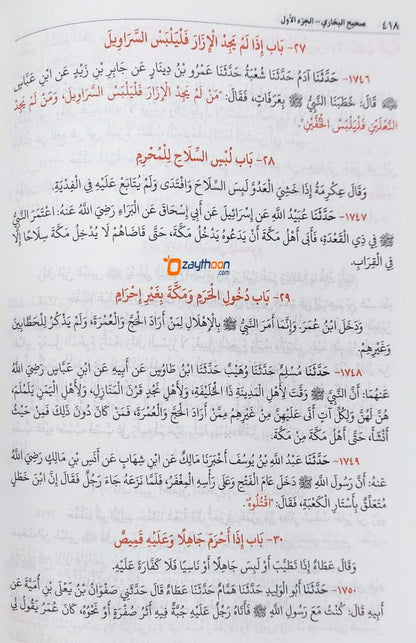 ٤١٨ صحيح البخاري - الجزء الأول
٢٧- بَاب إِذَا لَمْ يَجِدْ الْإِزَارَ فَلْيَلْبَسْ السَّرَاوِيلَ
١٧٤٦- حَدَّثَنَا آدَمُ حَدَّثَنَا شُعْبَةُ حَدَّثَنَا عَمْرُو بْنُ دِينَارٍ عَنْ جَابِرِ بْنِ زَيْدٍ عَنْ ابْنِ عَبَّاسٍ
ﷺ قَالَ: خَطَبَنَا النَّبِيُّ ﷺ بِعَرَفَاتٍ، فَقَالَ: "مَنْ لَمْ يَجِدْ الْإِزَارَ فَلْيَلْبَسْ السَّرَاوِيلَ، وَمَنْ لَمْ يَجِدْ
النَّعْلَيْنِ فَلْيَلْبَسْ الْخُفَّيْنِ"
٢٨- بَاب لُبْسِ السِّلَاحِ لِلْمُحْرِمِ
وَقَالَ عِكْرِمَةُ إِذَا خَشِيَ الْعَدُوَّ لَبِسَ السِّلَاحَ وَافْتَدَى وَلَمْ يُتَابَعْ عَلَيْهِ فِي الْفِدْيَةِ.
١٧٤٧- حَدَّثَنَا عُبَيْدُ اللَّهِ عَنْ إِسْرَائِيلَ عَنْ أَبِي إِسْحَاقَ عَنْ الْبَرَاءِ رَضِيَ اللَّهُ عَنْهُ: اعْتَمَرَ النَّبِيُّ
ﷺ فِي ذِي الْقَعْدَةِ، فَأَبَى أَهْلُ مَكَّةَ أَنْ يَدَعُوهُ يَدْخُلُ مَكَّةَ، حَتَّى قَاضَاهُمْ لَا يُدْخِلُ مَكَّةَ سِلَاحًا إِلَّا
فِي الْقِرَابِ.
Ozaythoon.com
٢٩- بَاب دُخُولِ الْحَرَمِ وَمَكَّةَ بِغَيْرِ إِحْرَامٍ
وَدَخَلَ ابْنُ عُمَرَ. وَإِنَّمَا أَمَرَ النَّبِيُّ ﷺ بِالْإِهْلَالِ لِمَنْ أَرَادَ الْحَجَّ وَالْعُمْرَةَ، وَلَمْ يَذْكُرْ لِلْحَطَّابِينَ
وَغَيْرِهِمْ.
١٧٤٨- حَدَّثَنَا مُسْلِمٌ حَدَّثَنَا وُهَيْبٌ حَدَّثَنَا ابْنُ طَاوُسٍ عَنْ أَبِيهِ عَنْ ابْنِ عَبَّاسٍ رَضِيَ اللَّهُ
عَنْهُمَا: أَنَّ النَّبِيَّ ﷺ وَقَّتَ لِأَهْلِ الْمَدِينَةِ ذَا الْحُلَيْفَةِ، وَلِأَهْلِ نَجْدٍ قَرْنَ الْمَنَازِلِ، وَلِأَهْلِ الْيَمَنِ يَلَمْلَمَ،
هُنَّ لَهُنَّ وَلِكُلِّ آتٍ أَتَى عَلَيْهِنَّ مِنْ غَيْرِهِمْ مِمَّنْ أَرَادَ الْحَجَّ وَالْعُمْرَةَ، فَمَنْ كَانَ دُونَ ذَلِكَ فَمِنْ حَيْثُ
أَنْشَأَ، حَتَّى أَهْلُ مَكَّةَ مِنْ مَكَّةَ.
١٧٤٩- حَدَّثَنَا عَبْدُ اللَّهِ بْنُ يُوسُفَ أَخْبَرَنَا مَالِكٌ عَنْ ابْنِ شِهَابٍ عَنْ أَنَسِ بْنِ مَالِكٍ رَضِيَ اللَّهُ
عَنْهُ: أَنَّ رَسُولَ اللَّهِ ﷺ دَخَلَ عَامَ الْفَتْحِ وَعَلَى رَأْسِهِ الْمِغْفَرُ، فَلَمَّا نَزَعَهُ جَاءَ رَجُلٌ فَقَالَ إِنَّ ابْنَ خَطَلٍ
مُتَعَلِّقٌ بِأَسْتَارِ الْكَعْبَةِ، فَقَالَ: "اقْتُلُوهُ".
٣٠- بَاب إِذَا أَحْرَمَ جَاهِلًا وَعَلَيْهِ قَمِيصٌ
وَقَالَ عَطَاءٌ إِذَا تَطَيَّبَ أَوْ لَبِسَ جَاهِلًا أَوْ نَاسِيًا فَلَا كَفَّارَةَ عَلَيْهِ.
١٧٥٠- حَدَّثَنَا أَبُو الْوَلِيدِ حَدَّثَنَا هَمَّامٌ حَدَّثَنَا عَطَاءٌ قَالَ حَدَّثَنِي صَفْوَانُ بْنُ يَعْلَى بْنِ أُمَيَّةَ عَنْ
أَبِيهِ قَالَ: كُنْتُ مَعَ رَسُولِ اللَّهِ ﷺ فَأَتَاهُ رَجُلٌ عَلَيْهِ جُبَّةٌ فِيهِ أَثَرُ صُفْرَةٍ أَوْ نَحْوُهُ، كَانَ عُمَرُ يَقُولُ لِي